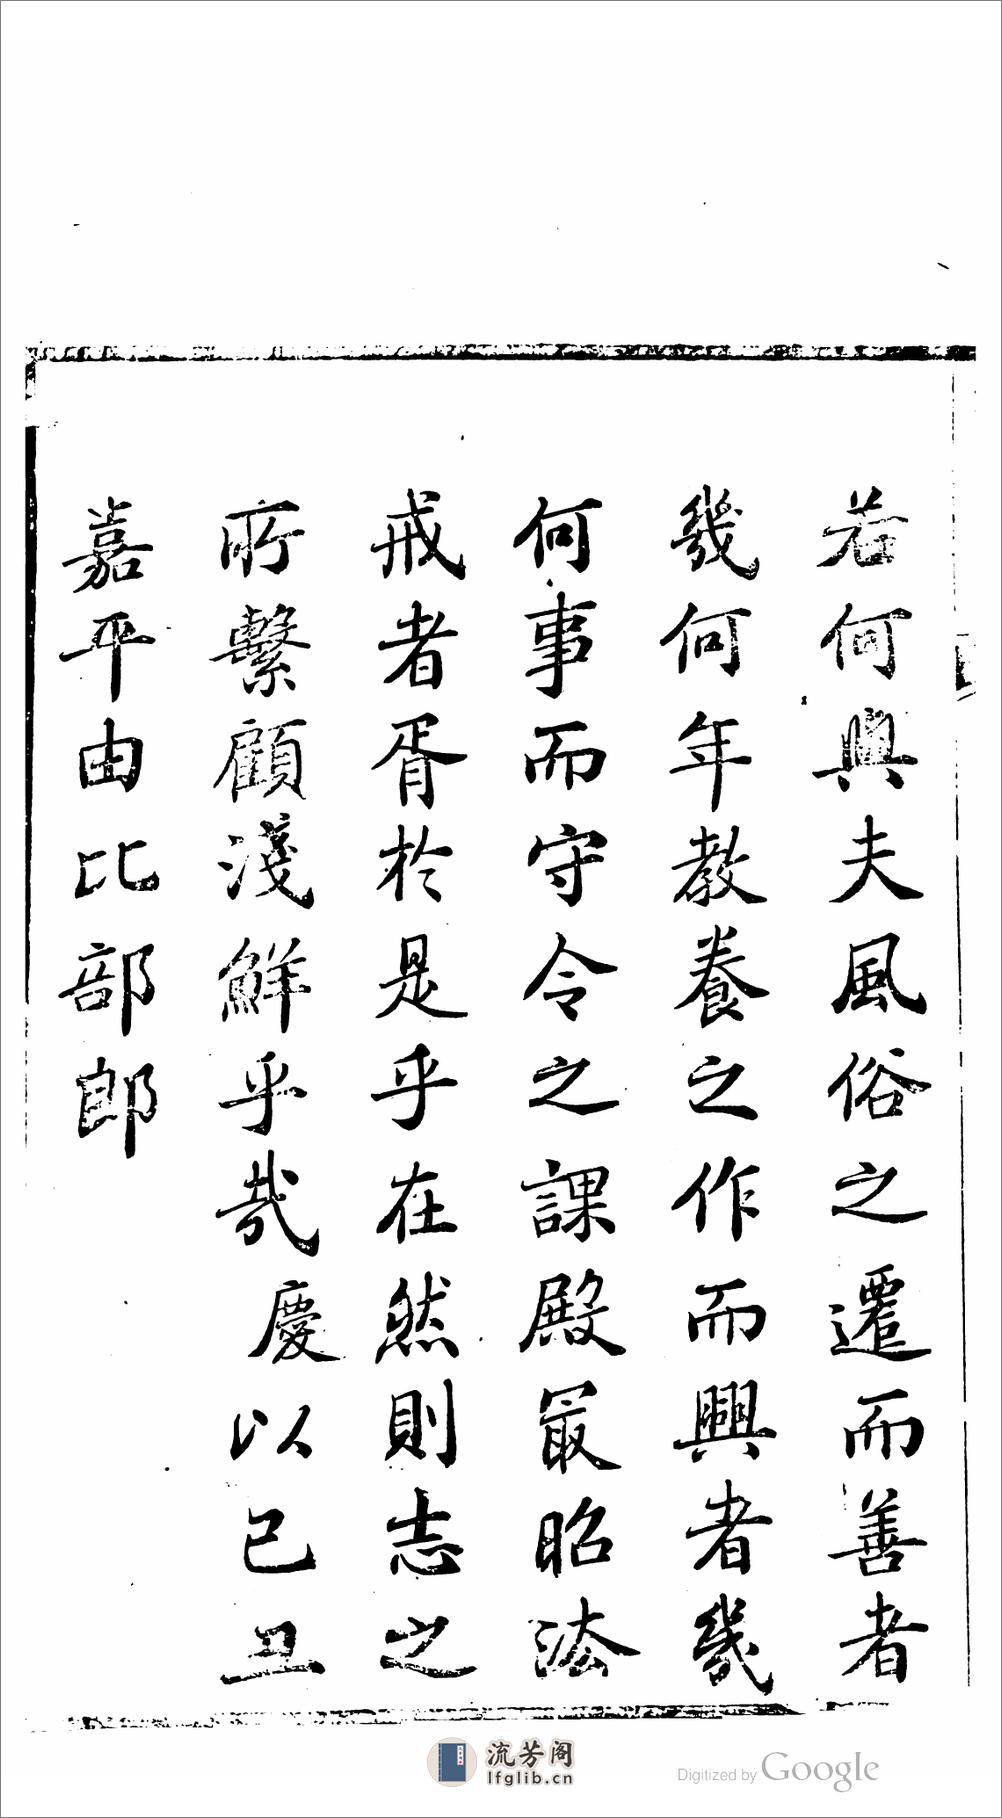 若何興夫風俗之遷而善者
幾何年教養之作而興者幾
何事而守令之課殿最昭法
戒者胥於是乎在然則志之
所繫顧淺鮮乎哉慶以己丑
嘉平由比部郎
流芳阁
lfglib.cn
Digitized by Google